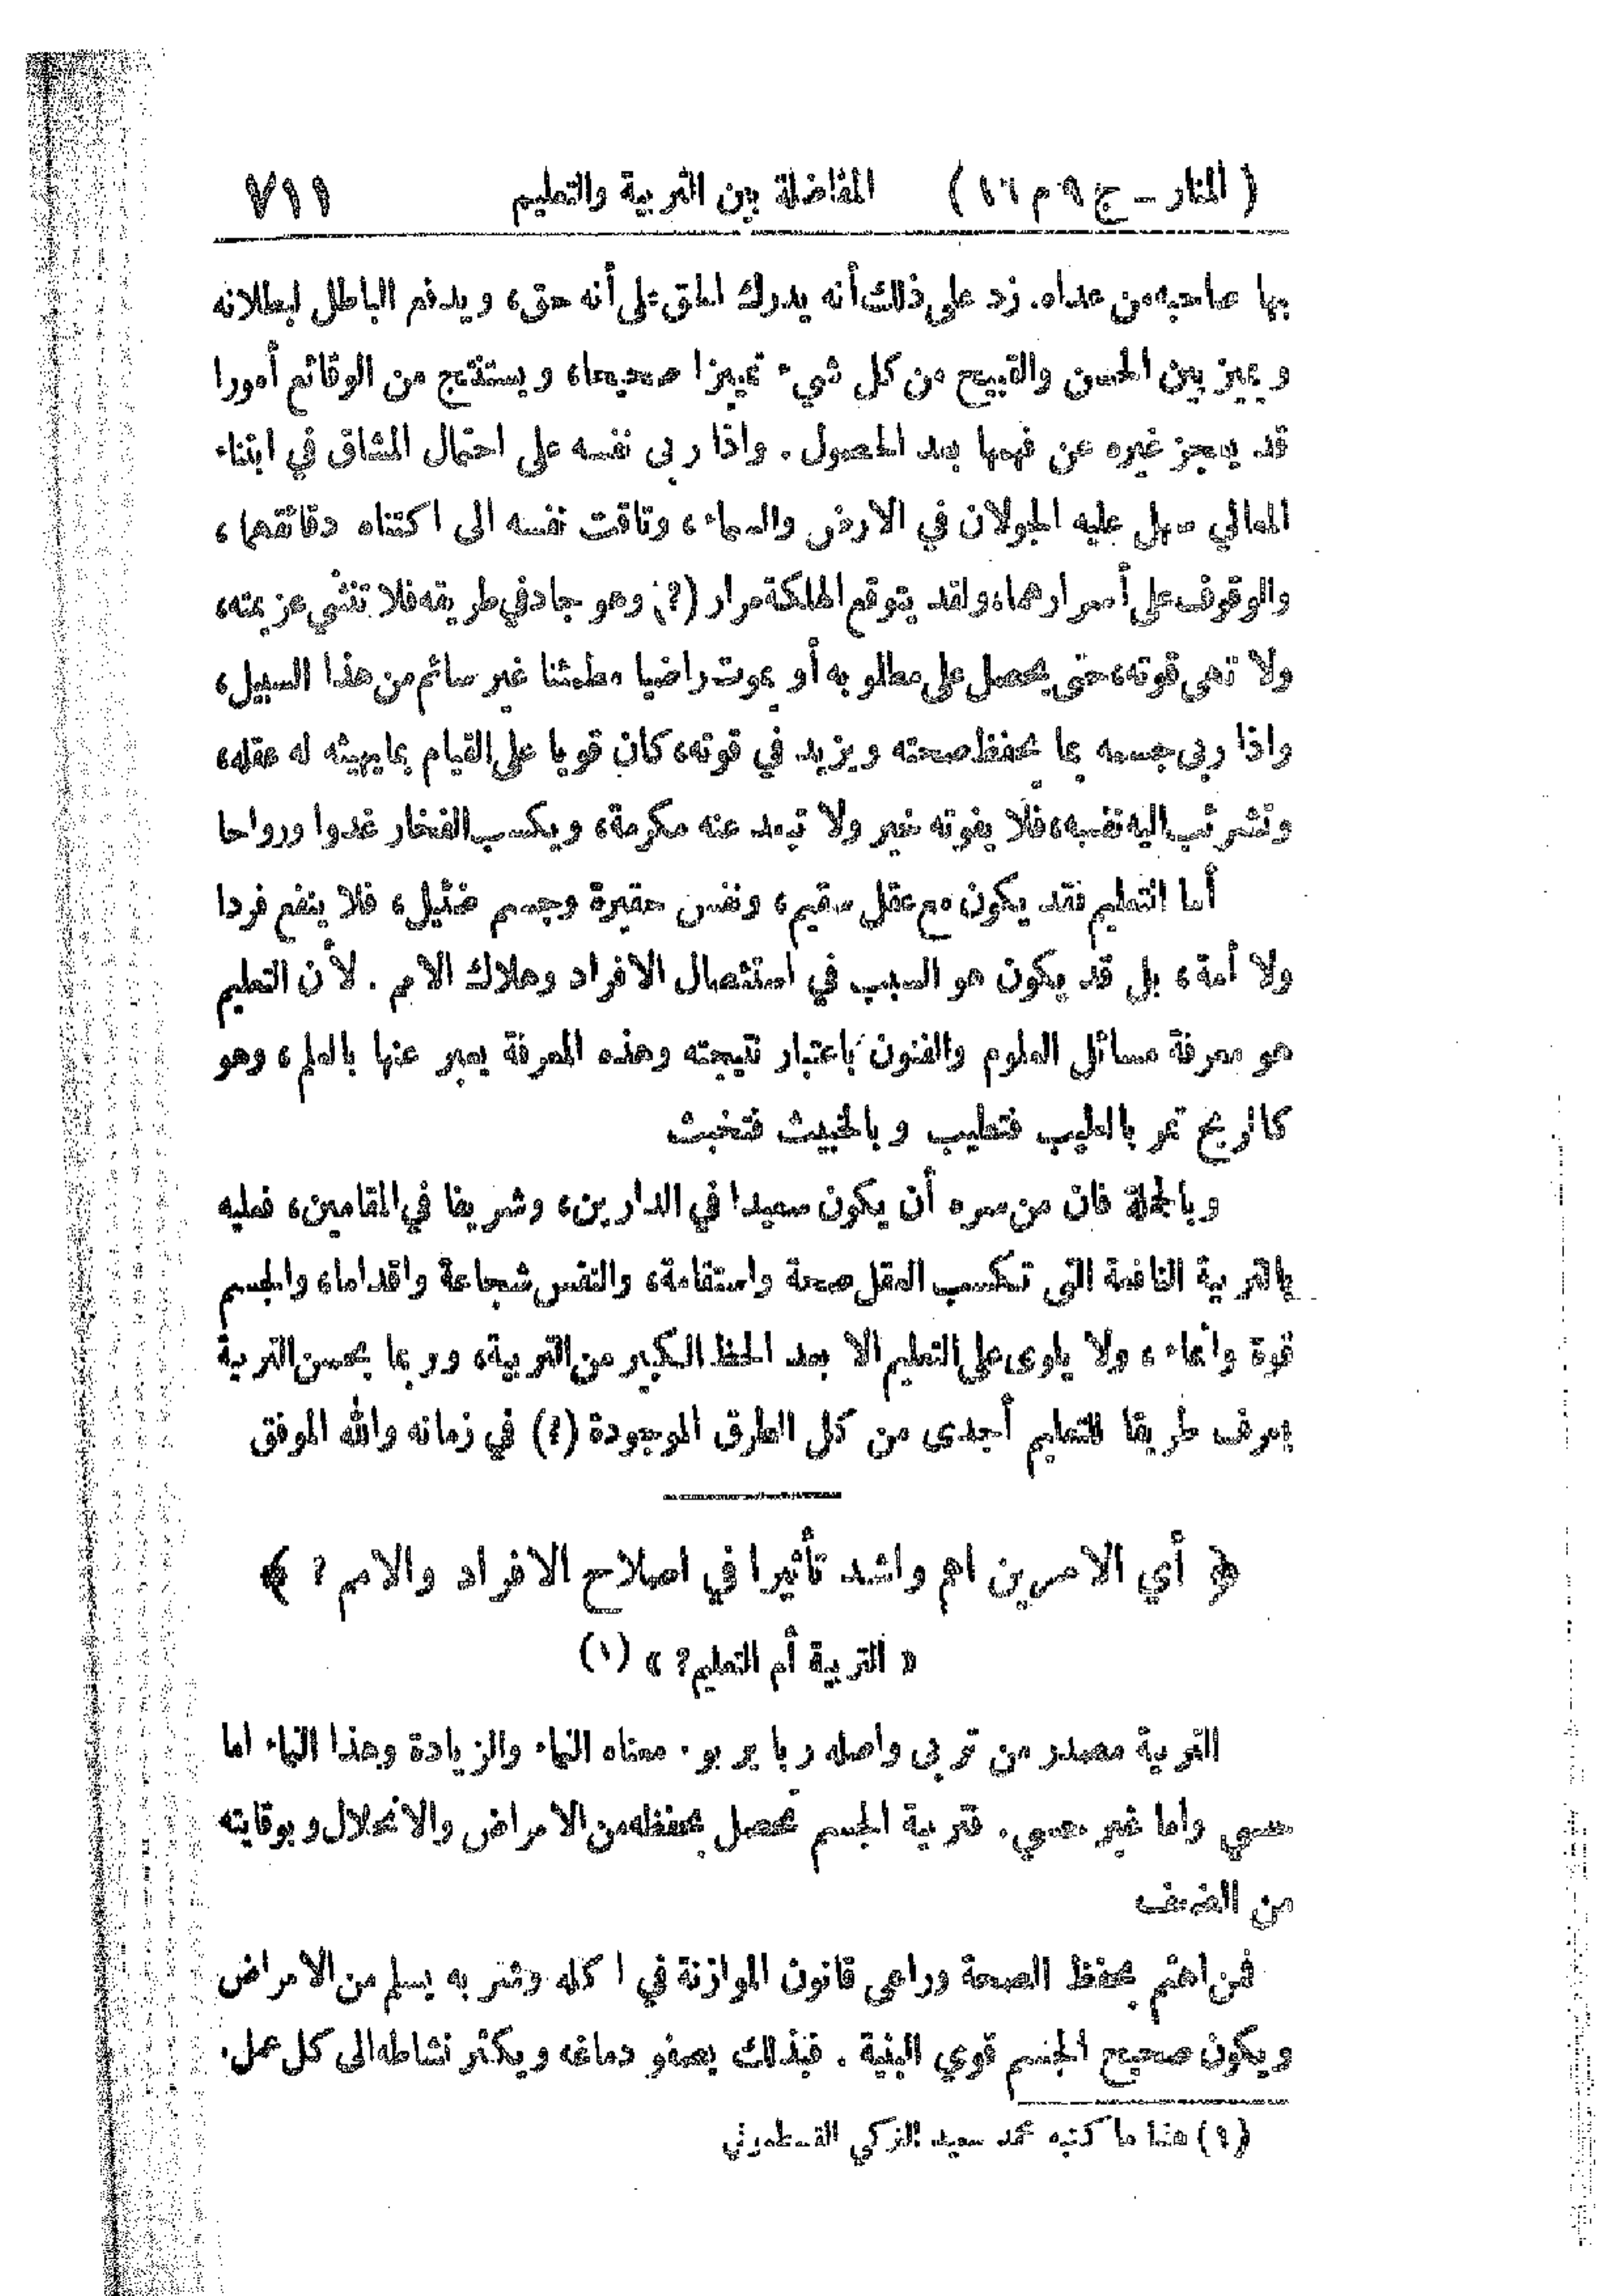 ( المنار – ج ٩ م ١٦ ) المفاضلة بين التربية والتعليم ٧١١
بها صاحبه من عداه. زد على ذلك أنه يدرك الحق على أنه حق، ويدفع الباطل لبطلانه
ويميز بين الحسن والقبيح من كل شيء تمييزا صحيحا، ويستنتج من الوقائع أمورا
قد يعجز غيره عن فهمها بعد الحصول . واذا ربى نفسه على احتمال المشاق في ابتناء
المعالي سهل عليه الجولان في الارض والسماء، وتاقت نفسه الى اكتناه دقائقهما،
والوقوف على أسرارهما، ولقد يتوقع الهلكة مرار (؟) وهو جاد في طريقه فلا تنثني عزيمته،
ولا تهي قوته، حتى يحصل على مطلوبه أو يموت راضيا مطمئنا غير سائم من هذا السبيل،
واذا ربى جسمه بما يحفظ صحته ويزيد في قوته، كان قويا على القيام بما يهيئه له عقله،
وتشرئب اليه نفسه، فلا يفوته خير ولا تبعد عنه مكرمة، ويكسب الفخار غدوا ورواحا
أما التعليم فقد يكون مع عقل سقيم، ونفس حقيرة وجسم ضئيل، فلا ينفع فردا
ولا أمة، بل قد يكون هو السبب في استئصال الافراد وهلاك الامم . لأن التعليم
هو معرفة مسائل العلوم والفنون باعتبار نتيجته وهذه المعرفة يعبر عنها بالعلم، وهو
كالريح تمر بالطيب فتطيب وبالخبيث فتخبث
وبالجملة فان من سره أن يكون سعيدا في الدارين، وشريفا في المقامين، فعليه
بالتربية النافعة التي تكسب العقل صحة واستقامة، والنفس شجاعة واقداما، والجسم
قوة وانماء، ولا يلوى على التعليم الا بعد الحظ الكبير من التربية، وربما بحسن التربية
يعرف طريقا للتعليم أجدى من كل الطرق الموجودة (؟) في زمانه والله الموفق
﴿ أي الامرين اهم واشد تأثيرا في اصلاح الافراد والامم ؟ ﴾
« التربية أم التعليم؟ » (١)
التربية مصدر من تربى واصله ربا يربو. معناه النماء والزيادة وهذا النماء اما
حسي واما غير حسي. فتربية الجسم تحصل بحفظه من الامراض والانحلال وبوقايته
من الضعف
فمن اهتم بحفظ الصحة وراعى قانون الموازنة في اكله وشربه يسلم من الامراض
ويكون صحيح الجسم قوي البنية . فبذلك يصفو دماغه ويكثر نشاطه الى كل عمل.
(١) هذا ما كتبه محمد سعيد التركي القسطموني